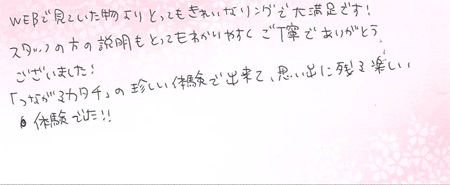 WEBで見ていた物よりとってもきれいなリングで大満足です!
スタッフの方の説明もとってもわかりやすくご丁寧でありがとう
ございました!
「つながるカタチ」の珍しい体験で出来て、思い出に残る楽しい
体験でした!!